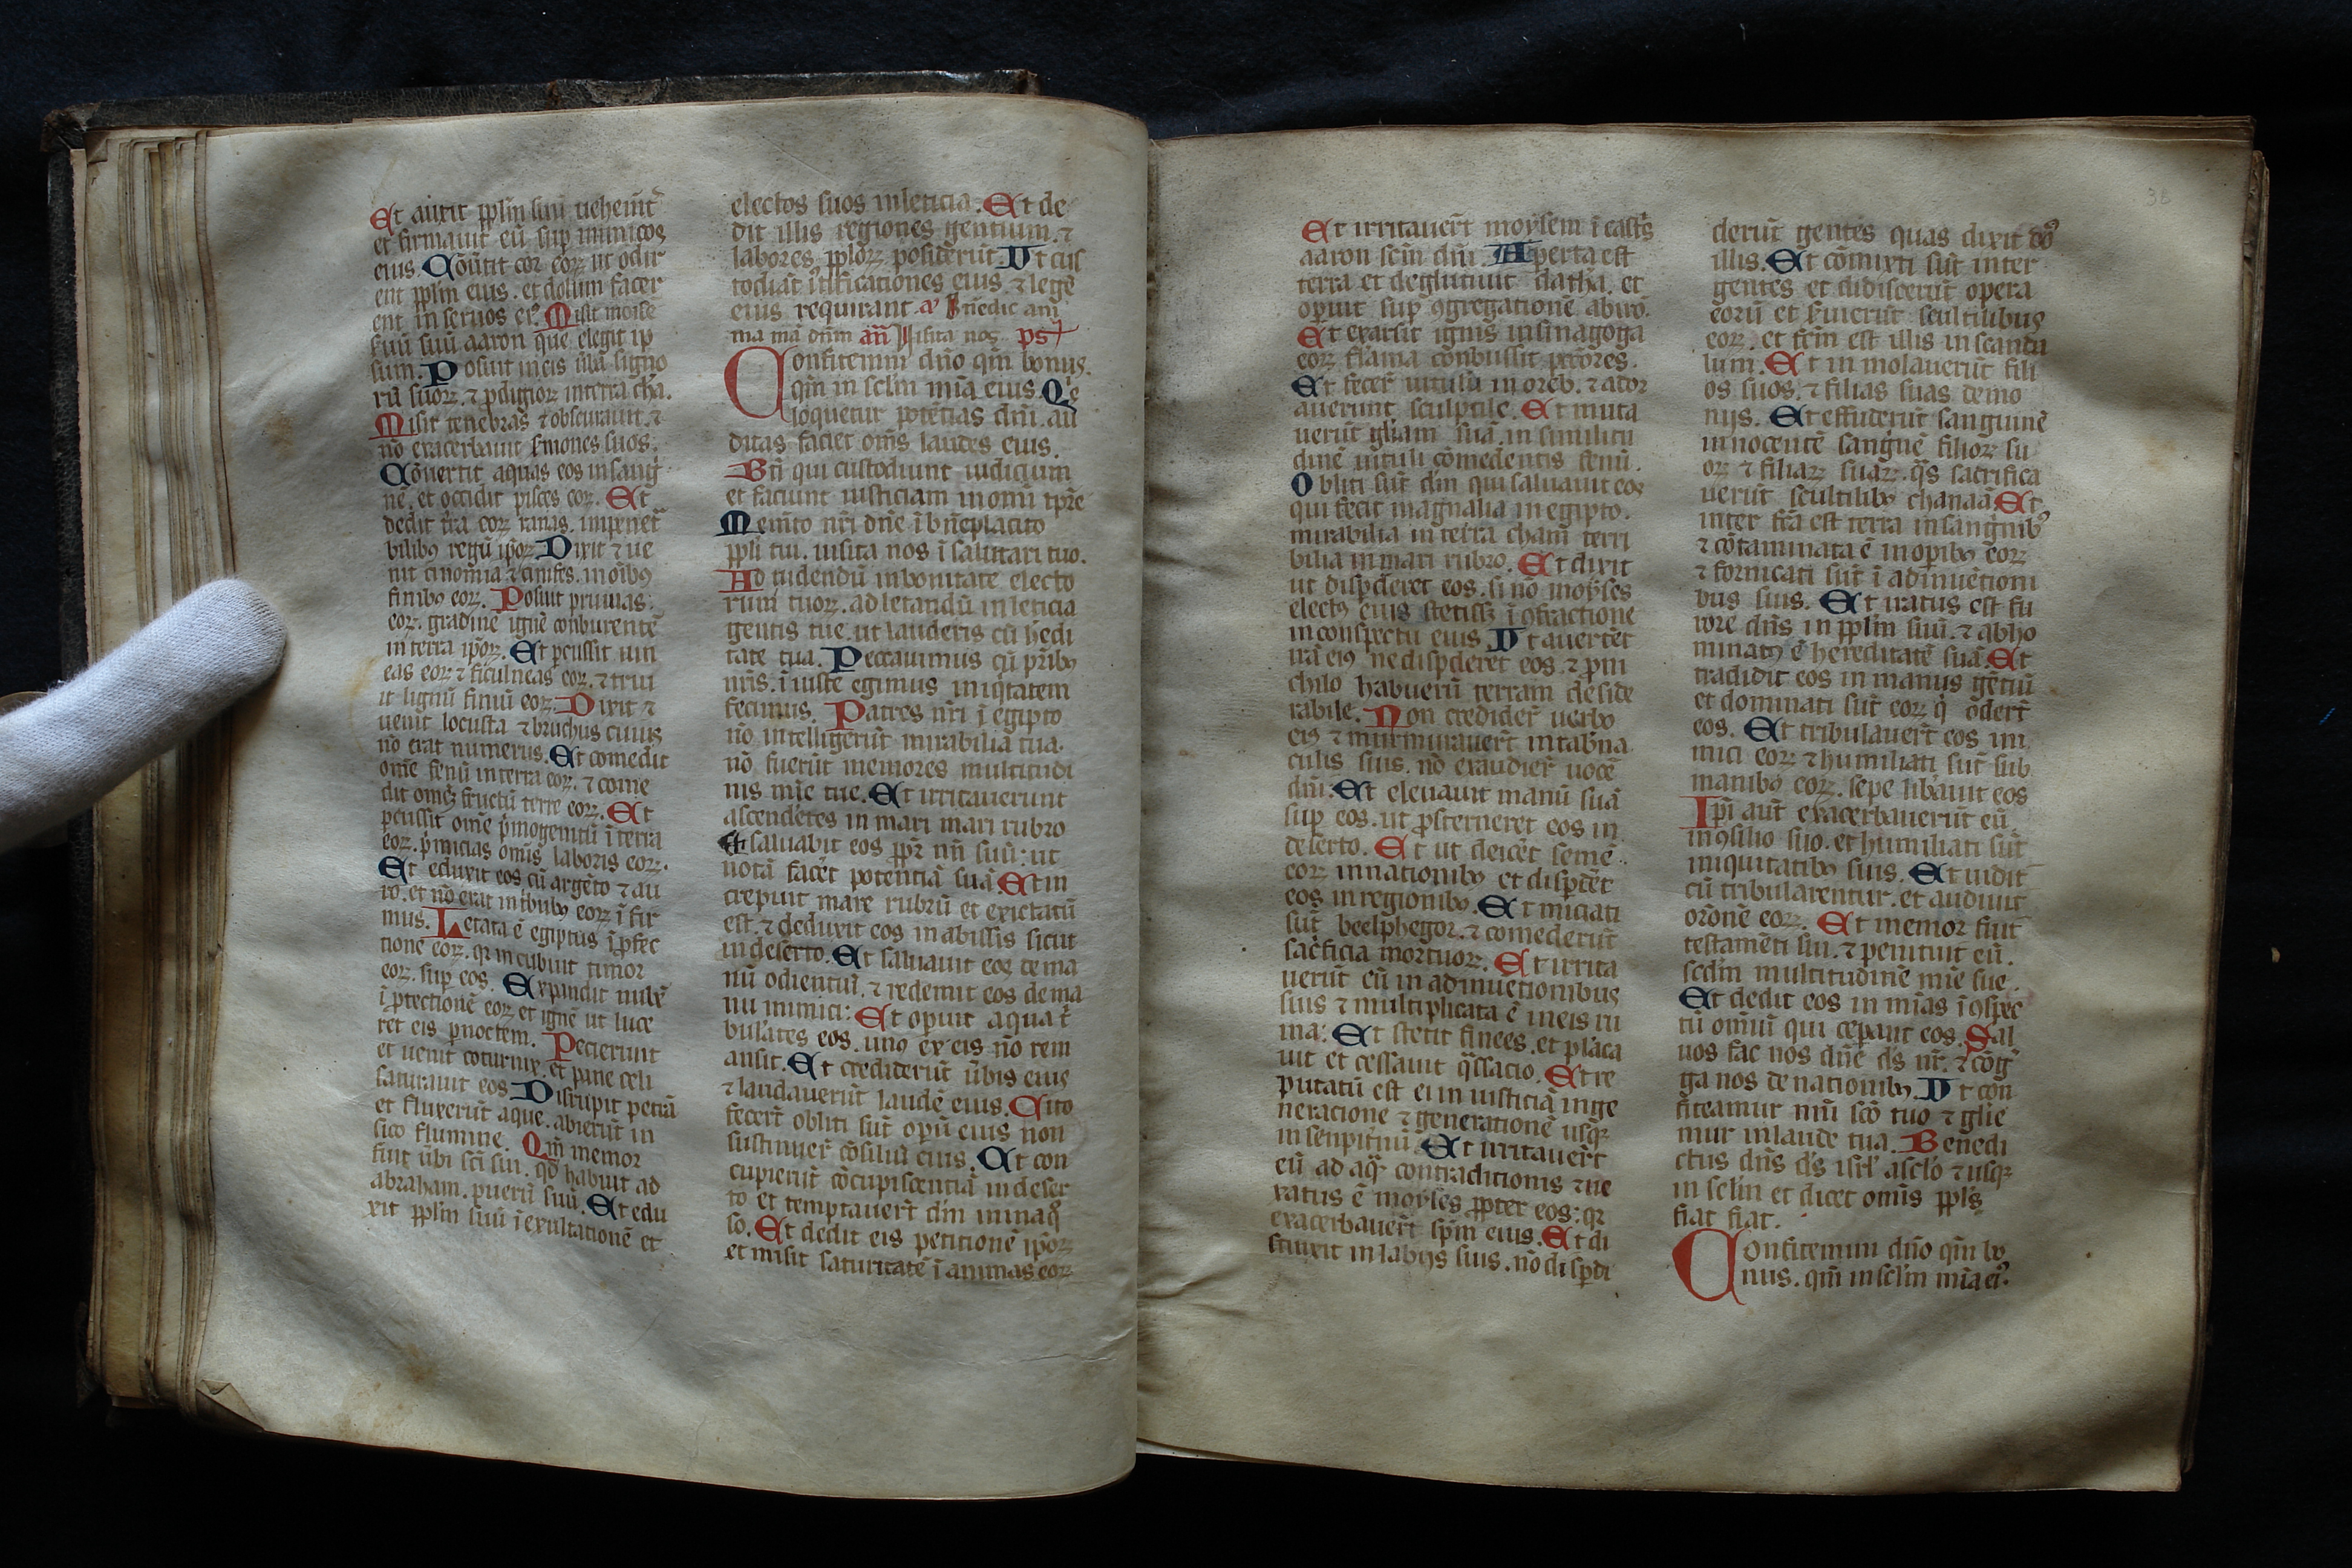 Et auxit pplm suu uehemt
et firmauit eu sup inimicos
eius. Couertit cor eoꝝ ut odir
ent pplm eius. et dolum facer
ent in seruos ei. Misit moise
seruu suu aaron que elegit ip
sum. Posuit in eis uba signo
ru suoꝝ. ⁊ pdigioꝝ in terra cha.
Misit tenebras ⁊ obscurauit. ⁊
no exacerbauit sermones suos.
Couertit aquas eos in sang
ne. et occidit pisces eoꝝ. Et
dedit tra eoꝝ ranas. impenet
bilibꝰ regu ipoꝝ. Dixit ⁊ ue
nit cinomia ⁊ cinifes. in oibꝰ
finibꝰ eoꝝ. Posuit pruinas.
eoꝝ. gradine igne conburente
in terra ipoꝝ. Et pcussit uin
eas eoꝝ ⁊ ficulneas eoꝝ. ⁊ triui
it lignu finiu eoꝝ. Dixit ⁊
uenit locusta ⁊ bruchus cuius
no erat numerus. Et comedit
ome fenu in terra eoꝝ. ⁊ come
dit omeꝫ fructu terre eoꝝ. Et
pcussit ome pmogenitu i terra
eoꝝ. pmicias omis laboris eoꝝ.
Et eduxit eos cu argeto ⁊ au
ro. et no erat in tbubꝰ eoꝝ i fir
mus. Letata e egiptus i pfec
tione eoꝝ. qr incubuit timor
eoꝝ. sup eos. Expandit nube
i ptectione eoꝝ et igne ut luce
ret eis p noctem. Pecierunt
et uenit coturnix. et pane celi
saturauit eos Disrupit petra
et fluxerut aque. abierut in
sico flumine. Qm memor
fuit ubi sci sui. qd habuit ad
abraham. pueru suu. Et edu
xit pplm suu i exultatione et
electos suos in leticia. Et de
dit illis regiones gentium. ⁊
labores pploꝝ possiderut. Vt cus
todiat iustificationes eius. ⁊ lege
eius requirant. a Benedic ani
ma ma dnm an Visita nos ps
Confitemini dno qm bonus.
qm in sclm mia eius. Qs
loquetur potetias dni. au
ditas faciet oms laudes eius.
Bti qui custodiunt iudicium
et faciunt iusticiam in omi tpre
Memto nri dne i bneplacito
ppli tui. uisita nos i salutari tuo.
Ad uidendu in bonitate electo
rum tuoꝝ. ad letandu in leticia
gentis tue. ut lauderis cu hedi
tate tua. Peccauimus cu pribꝰ
nris. iiuste egimus iniqtatem
fecimus. Patres nri i egipto
no intelligerut mirabilia tua.
no fuerut memores multitudi
nis mie tue. Et irritauerunt
ascendetes in mari mari rubro
Et saluabit eos ppr nm suu: ut
nota facet potentia sua. Et in
crepuit mare rubru et exictatu
est. ⁊ deduxit eos in abissis sicut
in deserto. Et saluauit eos de ma
nu odientiu. ⁊ redemit eos de ma
nu inimici: Et opuit aqua t
bulates eos. unꝰ ex eis no rem
ansit. Et crediderut ubis eius
⁊ laudauerut laude eius. Cito
fecert obliti sut opu eius non
sustinuer cosiliu eius. Et con
cupierut cocupiscentia in deser
to et temptauert dm in inaq
so. Et dedit eis petitione ipoꝝ
et misit saturitate i animas eoꝝ
Et irritauert moysem i casts
aaron scm dni. Aperta est
terra et deglutiuit datha. et
opuit sup ꝯgregatione abiro.
Et exarsit ignis in sinagoga
eoꝝ flama conbussit pctores.
Et fecer uitulu in oreb. ⁊ ador
auerunt sculptile. Et muta
uerut gliam sua in similitu
dine uituli comedentis fenu.
Obliti sut dm qui saluauit eos
qui fecit magnalia in egipto.
mirabilia in terra cham terri
bilia in mari rubro. Et dixit
ut dispderet eos. si no moyses
electꝰ eius stetissꝫ i ꝯfractione
in conspectu eius Vt auertet
ira eiꝰ ne dispderet eos. ⁊ p ni
chilo habueru terram deside
rabile. Non credider uerbo
eiꝰ ⁊ murmurauert in tabna
culis suis. no exaudier uoce
dni. Et eleuauit manu sua
sup eos. ut psterneret eos in
deserto. Et ut deicet seme
eoꝝ in nationibꝰ et dispdet
eos in regionibꝰ. Et iniciati
sut beelphegor. ⁊ comederut
sacficia mortuoꝝ. Et irrita
uerut eu in adinuetionibus
suis ⁊ multiplicata e in eis ru
ina: Et stetit finees. et placa
uit et cessauit qssacio. Et re
putatu est ei in iusticia in ge
neracione ⁊ generatione usqꝫ
in senpitnu. Et irritauert
eu ad aq contraditionis ⁊ ue
xatus e moyses ppter eos: qr
exacerbauert spm eius. Et di
stinxit in labijs suis. no dispdi
derut gentes quas dixit do
illis. Et comixti sut inter
gentes et didiscerut opera
eoru et suierut scultilibus
eoꝝ. et fcm est illis in scanda
lum. Et in molauerut fili
os suos. ⁊ filias suas demo
nijs. Et effuderut sanguine
innocente sangue filioꝝ su
oꝝ ⁊ filiaꝝ suaꝝ. qs sacrifica
uerut scultilibꝰ chanaa. Et
inter fca est terra in sangnibꝰ
⁊ cotaminata e in opibꝰ eoꝝ
⁊ fornicati sut i adinuetioni
bus suis. Et iratus est fu
rore dns in pplm suu. ⁊ abho
minatꝰ e hereditate sua. Et
tradidit eos in manus getiu
et dominati sut eoꝝ q odert
eos. Et tribulauert eos ini
mici eoꝝ ⁊ humiliati sut sub
manibꝰ eoꝝ. sepe libauit eos
Ipi aut exacerbauerut eu
in ꝯsilio suo. et humiliati sut
iniquitatibꝰ suis. Et uidit
cu tribularentur. et audiuit
orone eoꝝ. Et memor fuit
testameti sui. ⁊ penituit eu.
scdm multitudine mie sue.
Et dedit eos in mias i ꝯspec
tu omiu qui cepant eos. Sal
uos fac nos dne ds nr. ⁊ cog
ga nos de nationibꝰ. Vt con
fiteamur nni sco tuo ⁊ glie
mur in laude tua. Benedi
ctus dns ds isrl a sclo ⁊ usqꝫ
in sclm et dicet omis ppls
fiat fiat.
Confitemini dno qm bo
nus. qm in sclm mia eiꝰ.